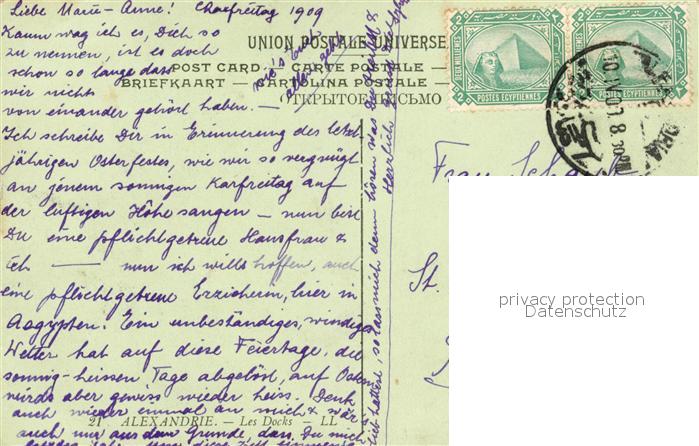 Liebe Marie-Anne! Charfreitag 1909
Kaum wag ich es, Dich so
zu nennen, ist es doch
schon so lange dass
wir nichts
von einander gehört haben. —
Ich schreibe Dir in Erinnerung des letzt-
jährigen Osterfestes, wie wir so vergnügt
an jenem sonnigen Karfreitag auf
der luftigen Höhe sangen — nun bist
Du eine pflichtgetreue Hausfrau &
ich — nun ich wills hoffen, auch
eine pflichtgetreue Erzieherin, hier in
Aegypten. Ein unbeständiges, windiges
Wetter hat auf diese Feiertage, die
sonnig-heissen Tage abgelöst, auf Ostern
wirds aber gewiss wieder heiss. Denk
auch wieder einmal an mich & wär
auch nur aus dem Grunde, dass Du mich
lieb hattest, so lass mich denn hören was
Herzlich
UNION POSTALE UNIVERSE
POST CARD — CARTE POSTALE —
BRIEFKAART — CARTOLINA POSTALE —
ОТКРЫТОЕ ПИСЬМО
2 DEUX MILLIEMES 2
POSTES EGYPTIENNES
2 2
POSTES EGYPTIENNES
Frau
St.
21 ALEXANDRIE. — Les Docks — LL
privacy protection
Datenschutz